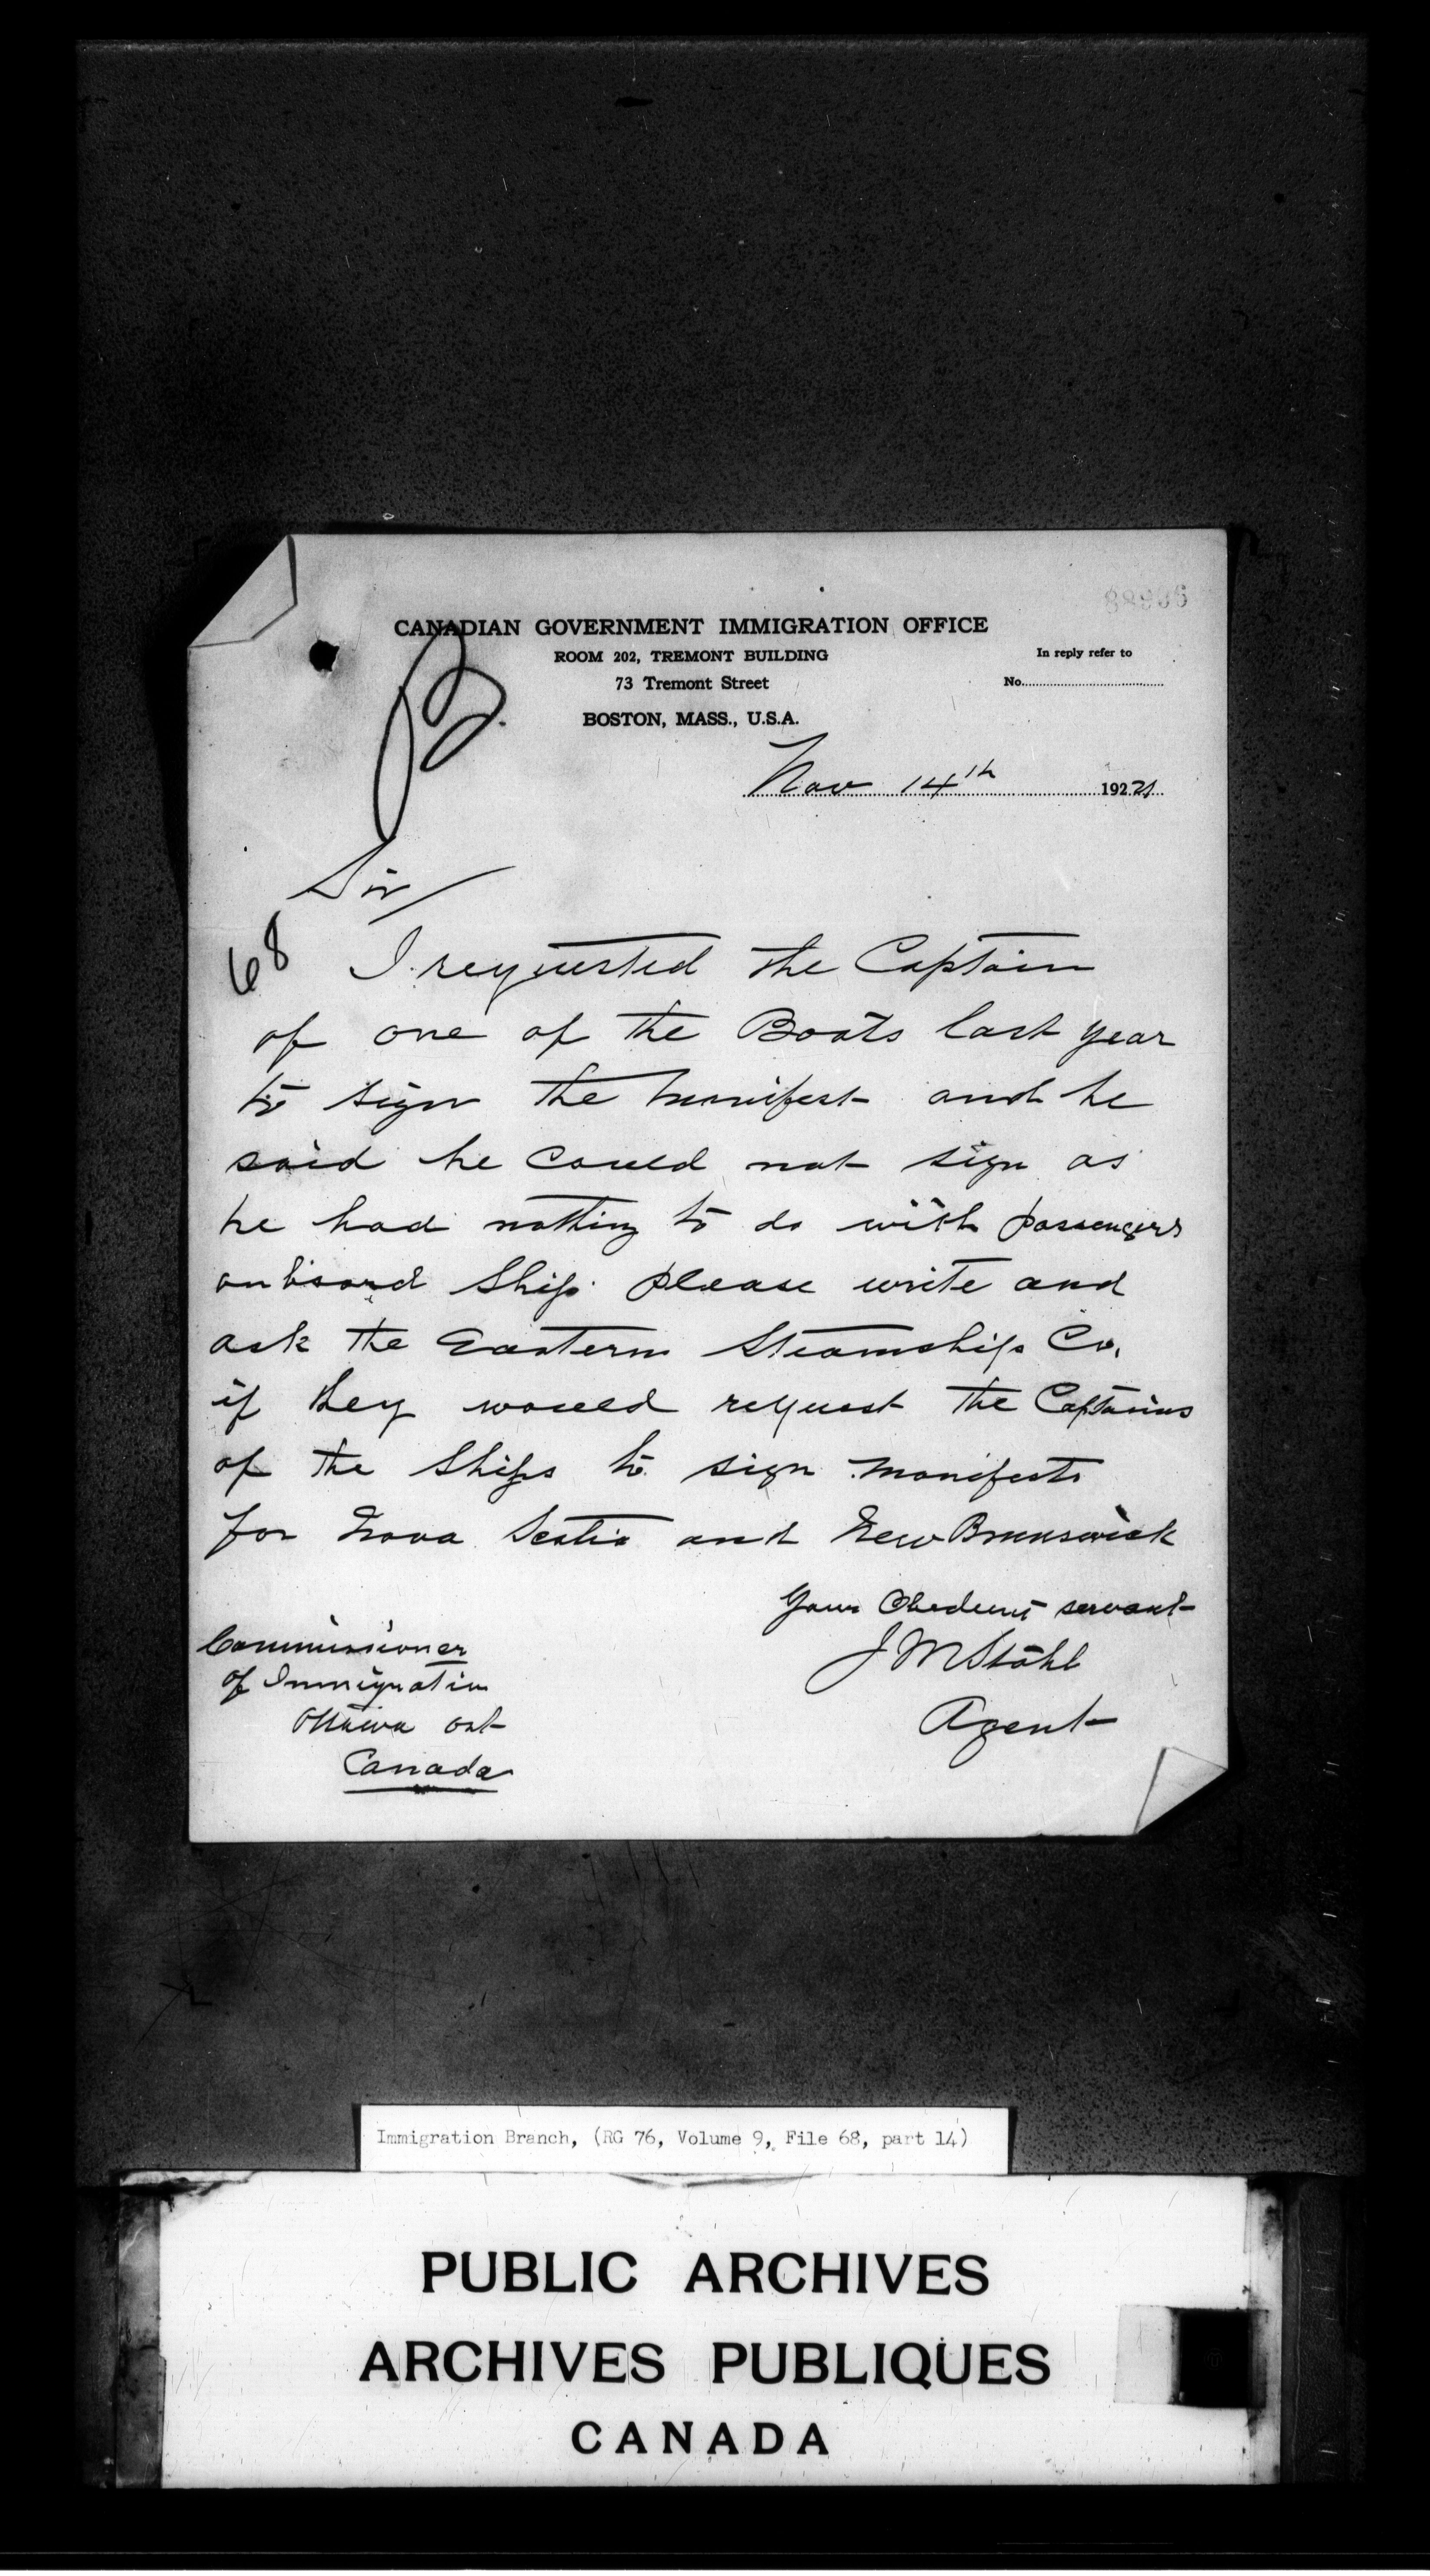 CANADIAN GOVERNMENT IMMIGRATION OFFICE
ROOM 202, TREMONT BUILDING
73 Tremont Street
BOSTON, MASS., U.S.A.
In reply refer to
No.
B.
Nov 14th 192
Sir/
68
I requested the Captain
of one of the Boats last year
to sign the manifest and he
said he could not sign as
he had nothing to do with passengers
onboard Ship. please write and
ask the Eastern Steamship Co.
if they would request the Captains
of the Ships to sign manifests
for Nova Scotia and New Brunswick
Your Obedient servant
J M Stahl
Agent
Commissioner
of Immigration
Ottawa Ont
Canada
Immigration Branch, (RG 76, Volume 9, File 68, part 14)
PUBLIC ARCHIVES
ARCHIVES PUBLIQUES
CANADA